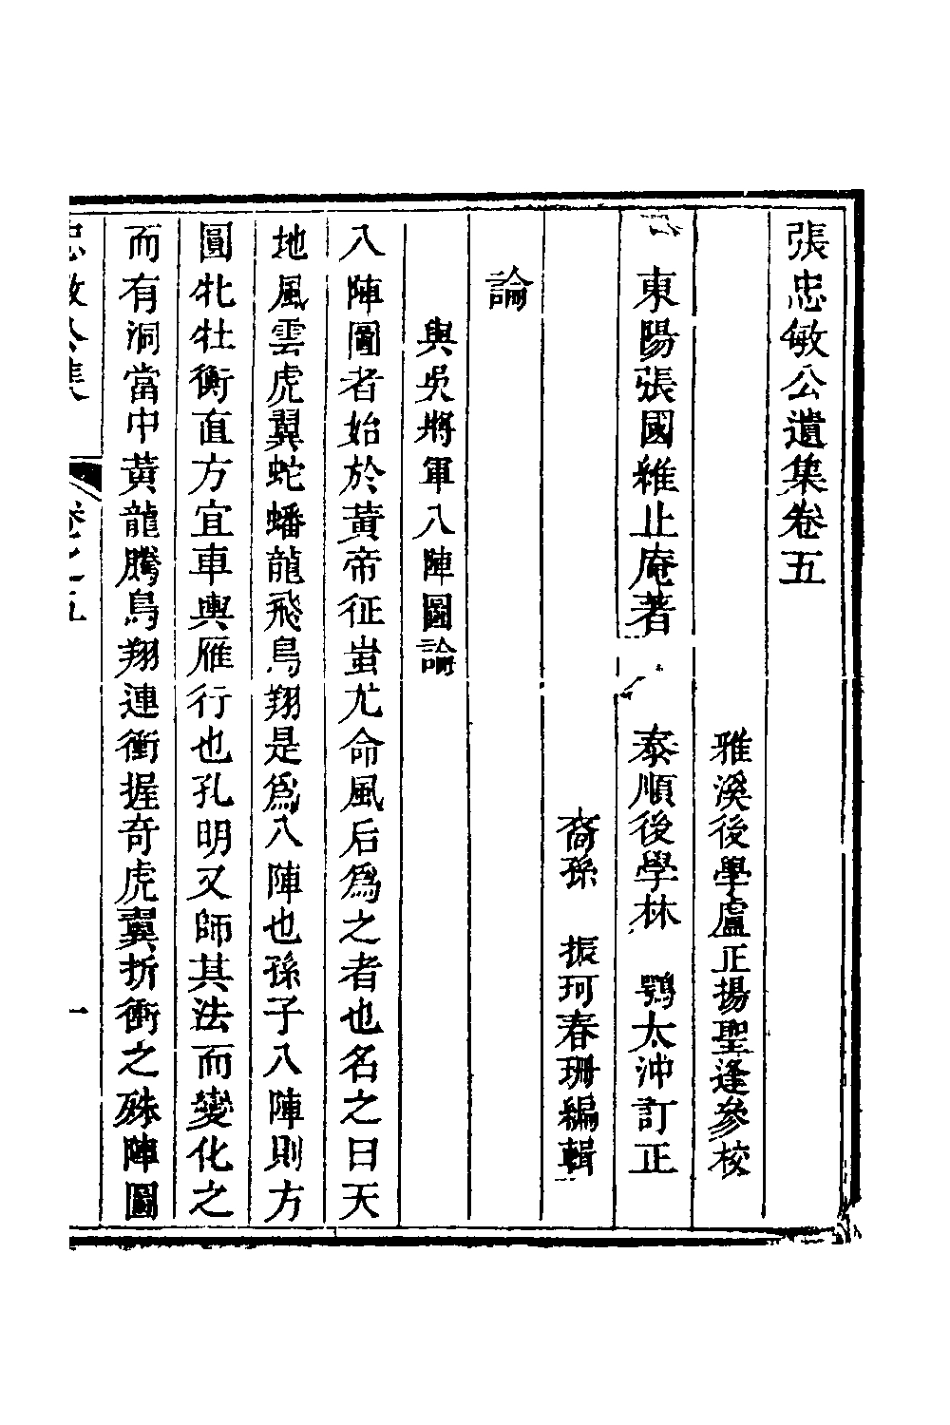 張忠敏公遺集卷五
雅溪後學盧正揚聖逢參校
東陽張國維止庵著　泰順後學林　鶚太沖訂正
裔孫　振珂春珊編輯
論
與吳將軍八陣圖論
八陣圖者始於黃帝征蚩尤命風后爲之者也名之曰天
地風雲虎翼蛇蟠龍飛鳥翔是爲八陣也孫子八陣則方
圓牝牡衡直方宜車輿雁行也孔明又師其法而變化之
而有洞當中黃龍騰鳥翔連衝握奇虎翼折衝之殊陣圖
忠敏公集　卷之五　一